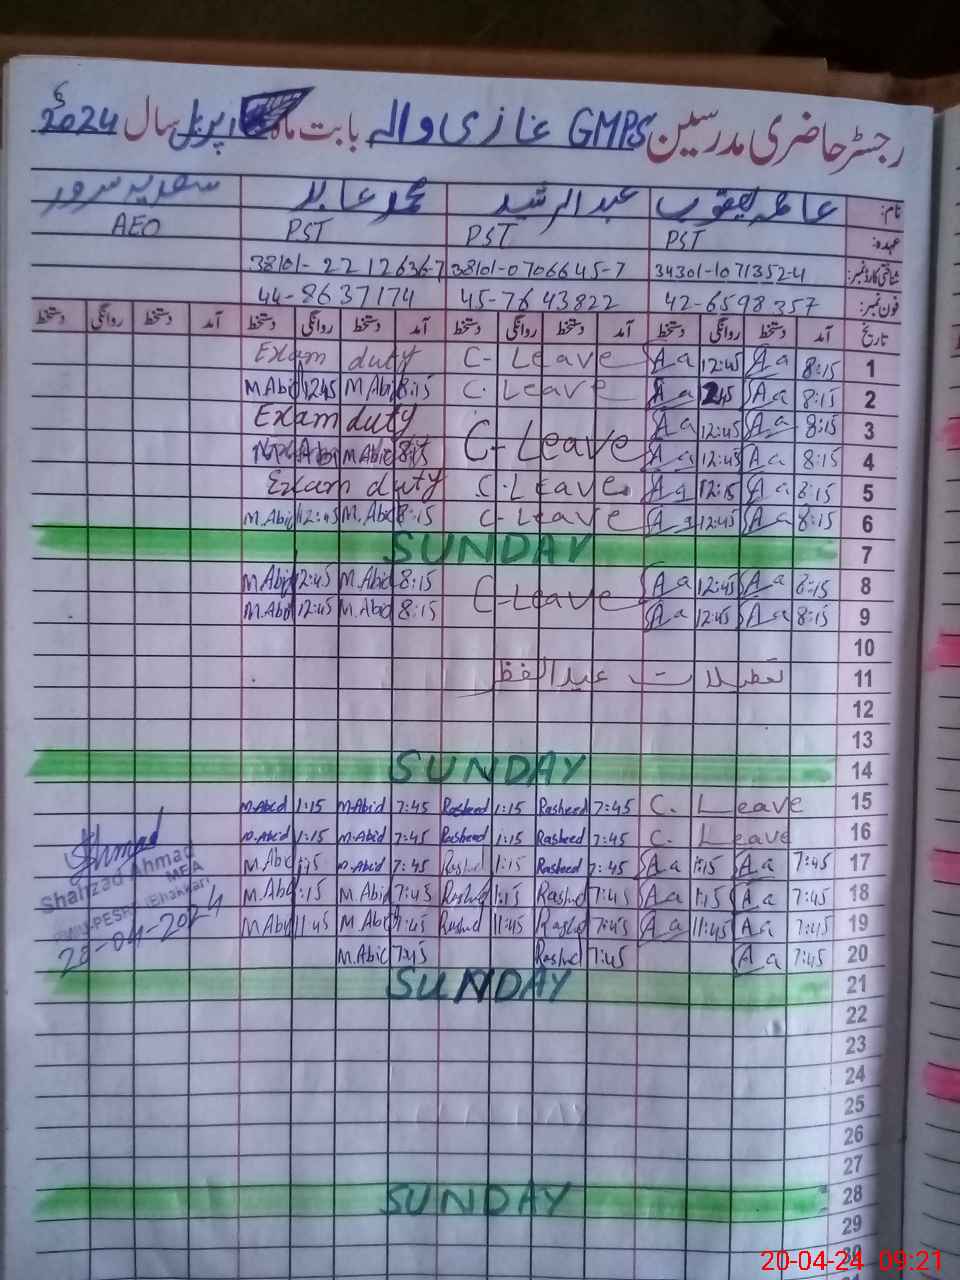 رجسٹر حاضری مدرسین GMPS غازی والہ بابت ماہ اپریل سال 2024ء
نام: عاطف یعقوب عبدالرشید محمد عابد سعدیہ سرور
عہدہ: PST PST PST AEO
شناختی کارڈ نمبر: 34301-1071352-4 38101-0706645-7 38101-2212636-7
فون نمبر: 42-6598357 45-7643822 44-8637174
تاریخ آمد دستخط روانگی دستخط آمد دستخط روانگی دستخط آمد دستخط روانگی دستخط آمد دستخط روانگی دستخط
Exam duty C-Leave Aa 12:45 Aa 8:15 1
M.Abid 1245 M.Abi 8:15 C.Leave Aa 245 Aa 8:15 2
Exam duty Aa 12:45 Aa 8:15 3
Abi M.Abid 8:15 C-Leave Aa 12:45 Aa 8:15 4
Exam duty C.Leave Aa 12:15 Aa 8:15 5
M.Abid 12:45 M.Abid 8:15 C-Leave Aa 12:45 Aa 8:15 6
SUNDAY 7
M.Abid 12:45 M.Abid 8:15 C-Leave Aa 12:45 Aa 8:15 8
M.Abd 12:45 M.Abid 8:15 Aa 12:45 Aa 8:15 9
10
تعطیلات عیدالفطر 11
12
13
SUNDAY 14
M.Abid 1:15 M.Abid 7:45 Rasheed 1:15 Rasheed 7:45 C. Leave 15
M.Abid 1:15 M.Abid 7:45 Rasheed 1:15 Rasheed 7:45 C. Leave 16
M.Abi 1:15 M.Abid 7:45 Rashd 1:15 Rasheed 7:45 Aa 1:15 Aa 7:45 17
M.Abi 1:15 M.Abid 7:45 Rashd 1:15 Rashed 7:45 Aa 1:15 Aa 7:45 18
M.Abid 11:45 M.Abid 7:45 Rashd 11:45 Rashd 7:45 Aa 11:45 Aa 7:45 19
M.Abid 7:45 Rashd 7:45 Aa 7:45 20
Ahmad
Shahzad Ahmad
MEA
PESRP (Bhakkar)
20-04-2024
SUNDAY 21
22
23
24
25
26
27
SUNDAY 28
29
30
20-04-24 09:21